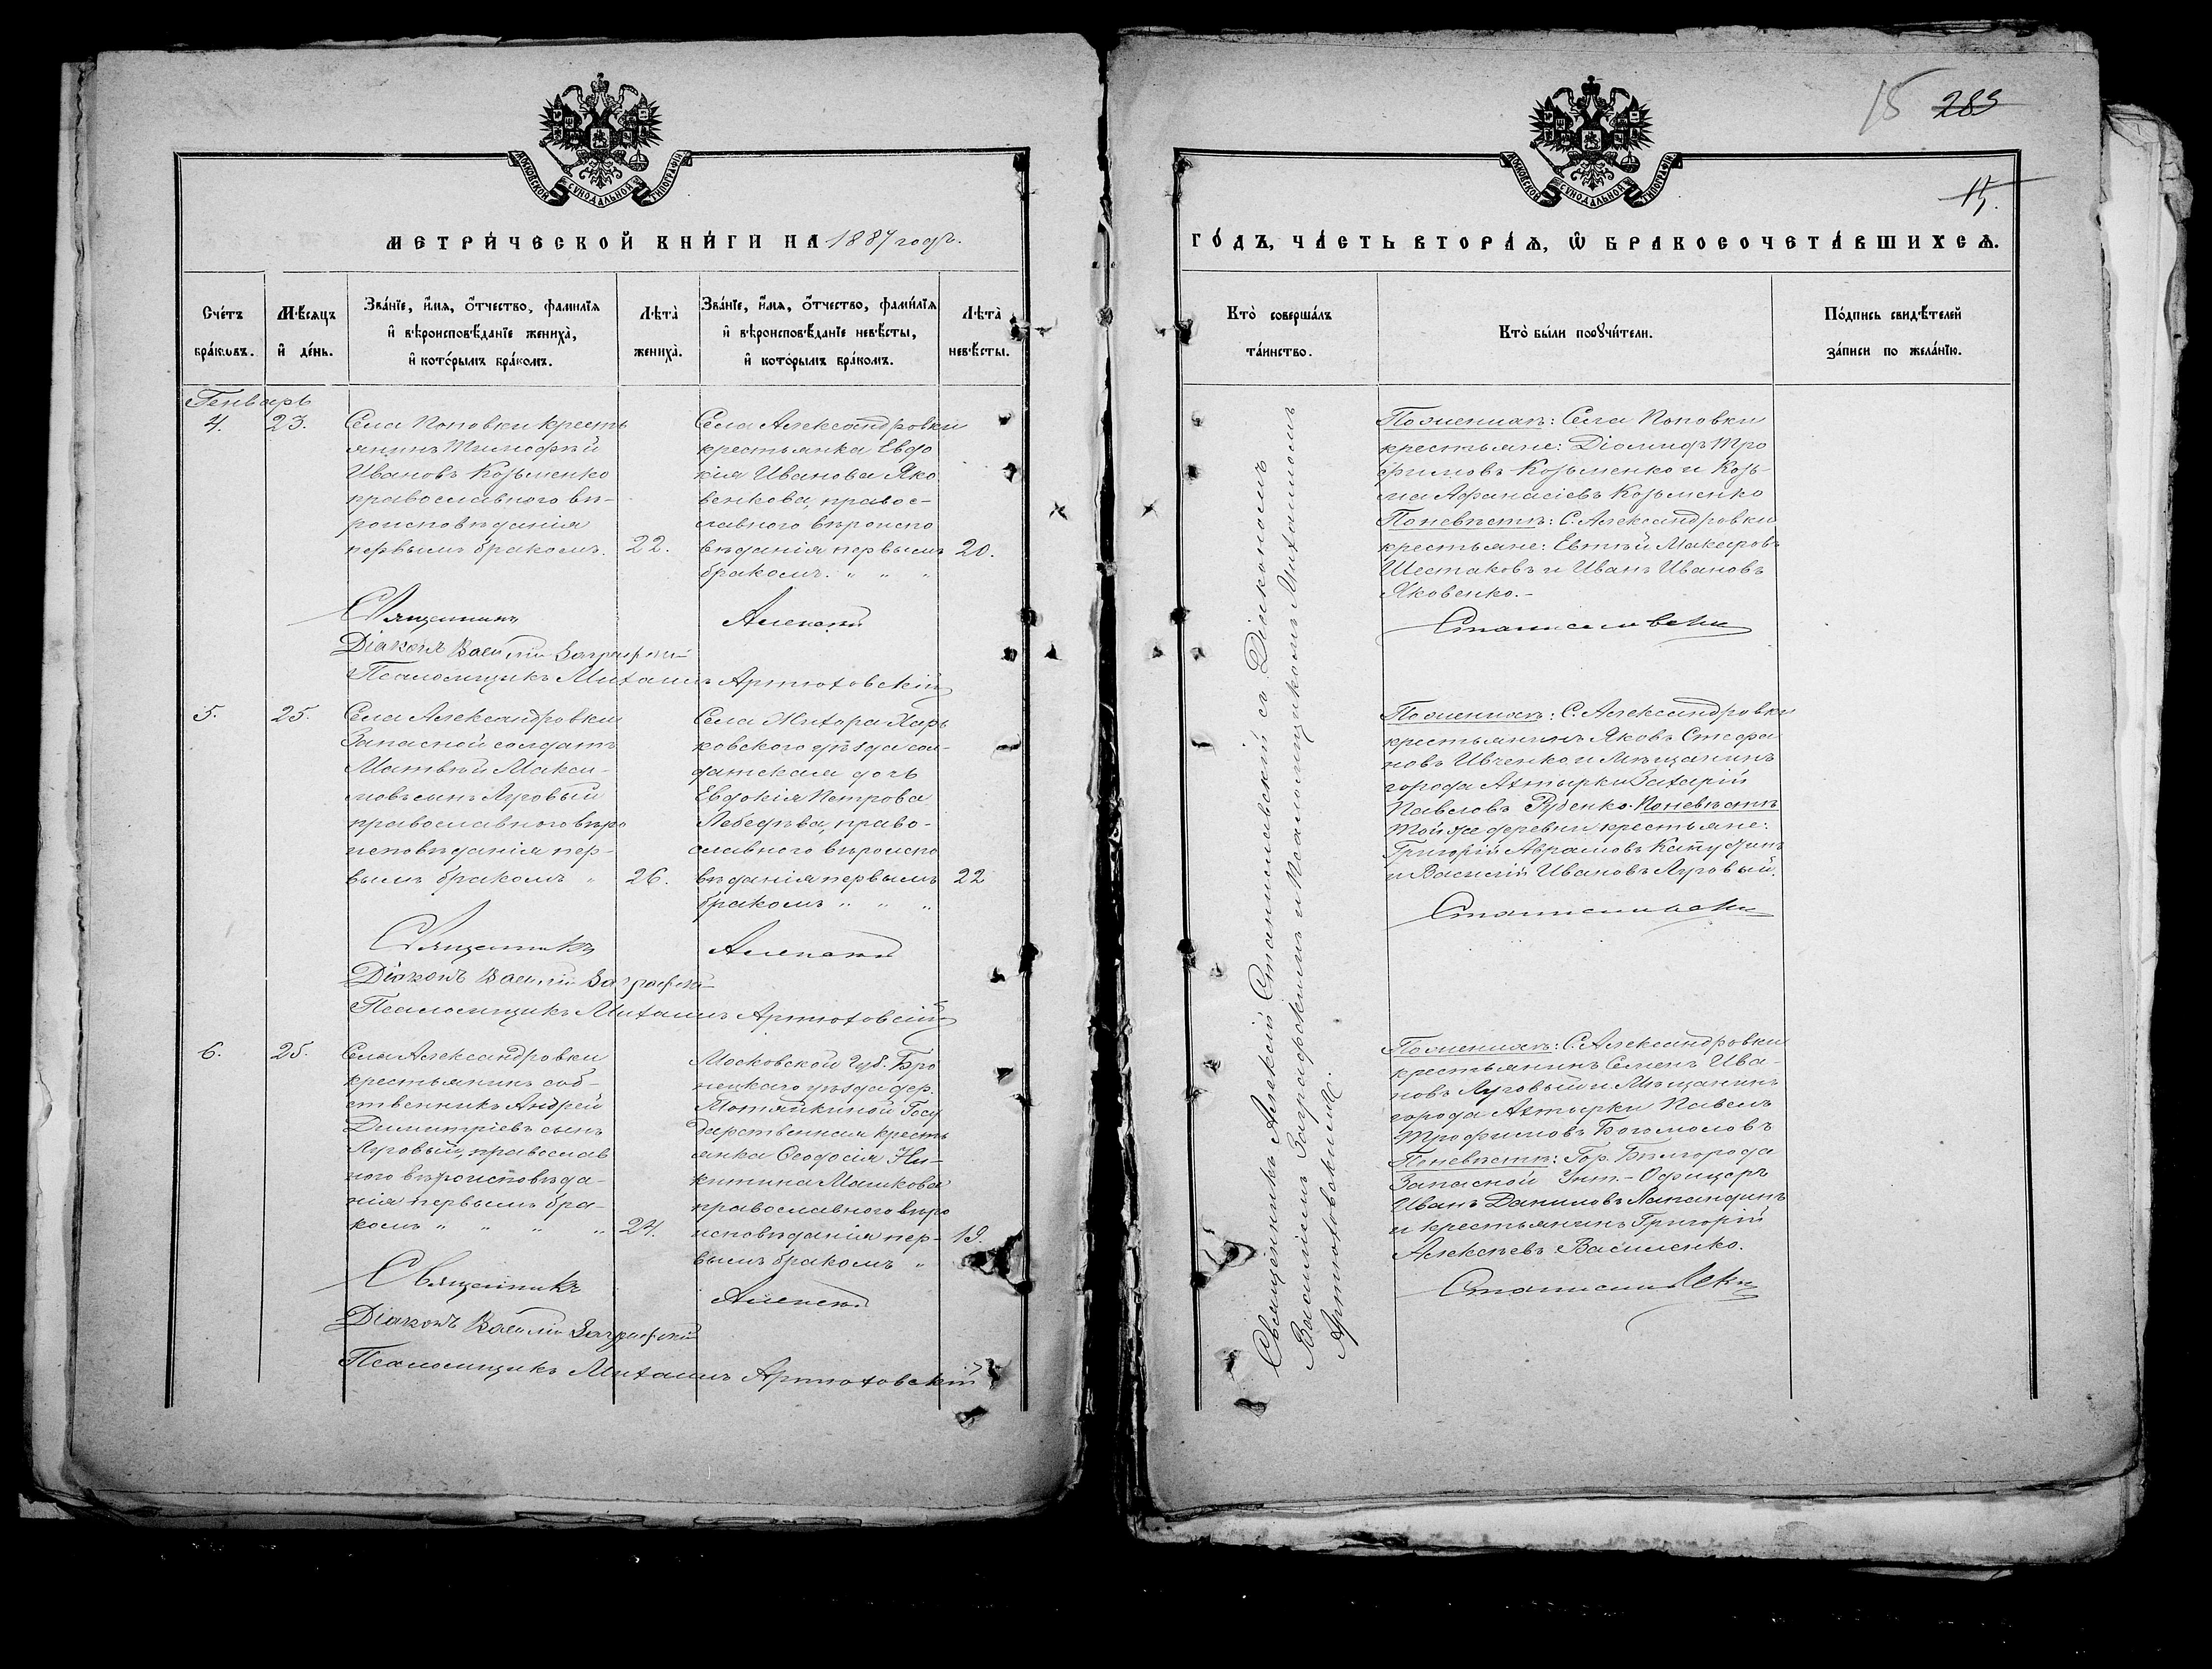 МОСКОВСКОЙ СУНОДАЛЬНОЙ ТИПОГРАФІИ
МЕТРИ́ЧЕСКОЙ КНИ́ГИ НА 1887 годъ.
Сче́тъ бра́ковъ.
Мѣ́сяцъ и҆ де́нь.
Зва́нїе, и҆́мя, ѻ҆́тчество, фами́лїя
и҆ вѣроисповѣ́данїе жениха̀,
и҆ кото́рымъ бра́комъ.
Лѣта̀ жениха̀.
Зва́нїе, и҆́мя, ѻ҆́тчество, фами́лїя
и҆ вѣроисповѣ́данїе невѣ́сты,
и҆ кото́рымъ бра́комъ.
Лѣта̀ невѣ́сты.
Генварь
4.
23.
Села Поповки кресть
янинъ Тимофѣй
Ивановъ Козьменко
православного вѣ-
роисповѣданія
первымъ бракомъ.
22.
Села Александровки
крестьянка Евдо
кія Иванова Яко
венкова, правос-
лавного вѣроиспо
вѣданія первымъ
бракомъ. " " "
20.
Священникъ Алексѣй
Діаконъ Василій Заграфскій
Псаломщикъ Михаилъ Артюховскій
5.
25.
Села Александровки
Запасной солдатъ
Матвѣй Макси-
мовъ сынъ Луговый
православного вѣро
исповѣданія пер-
вымъ бракомъ "
26.
Села Жихора Харь
ковского уѣзда сол-
датская дочь
Евдокія Петрова
Лебедѣва, право-
славного вѣроиспо
вѣданія первымъ
бракомъ " " "
22
Священникъ Алексѣй
Діаконъ Василій Заграфскій
Псаломщикъ Михаилъ Артюховскій
6.
25.
Села Александровки
крестьянинъ соб-
ственникъ Андрей
Димитріевъ сынъ
Луговый, православ
ного вѣроисповѣда-
нія первымъ бра-
комъ " " " "
24.
Московской Губ. Бро
нецкаго уѣзда дер.
Мотяйкиной Госу
дарственная кресть
янка Ѳеодосія Ни-
китина Машкова
православного вѣро
исповѣданія пер-
вымъ бракомъ "
19.
Священникъ Алексѣй
Діаконъ Василій Заграфскій
Псаломщикъ Михаилъ Артюховскій
15 283
15.
МОСКОВСКОЙ СУНОДАЛЬНОЙ ТИПОГРАФІИ
ГО́ДЪ, ЧА́СТЬ ВТОРА́Ѧ, Ѡ҆ БРАКОСОЧЕТА́ВШИХСѦ.
Кто̀ соверша́лъ
та́инство.
Кто̀ бы́ли порꙋчи́тели.
По́дпись свидѣ́телей
за́писи по жела́нїю.
Священникъ Алексій Станиславскій съ Діакономъ
Василіемъ Заграфскимъ и Псаломщикомъ Михаиломъ
Артюховскимъ.
По женихѣ: Села Поповки
крестьяне: Діомидъ Тро
фимовъ Козьменко и Козь-
ма Афанасіевъ Козьменко
По невѣстѣ: С. Александровки
крестьяне: Евтѣй Макаровъ
Шестаковъ и Иванъ Ивановъ
Яковенко.-
Станиславскій
По женихѣ: С. Александровки
крестьянинъ Яковъ Стефа
новъ Ивченко и Мѣщанинъ
города Ахтырки Захарій
Павловъ Руденко. По невѣстѣ
той же деревни крестьяне:
Григорій Аврамовъ
и Василій Ивановъ Луговый.
Станиславскій
По женихѣ: С. Александровки
крестьянинъ Семенъ Ива-
новъ Луговый и Мѣщанинъ
города Ахтырки Павелъ
Трофимовъ Богомоловъ
По невѣстѣ: Гор. Бѣлгорода
Запасной Унт.-Офицеръ
Иванъ Даниловъ
и крестьянинъ Григорій
Алексѣевъ Василенко.
Станиславскій